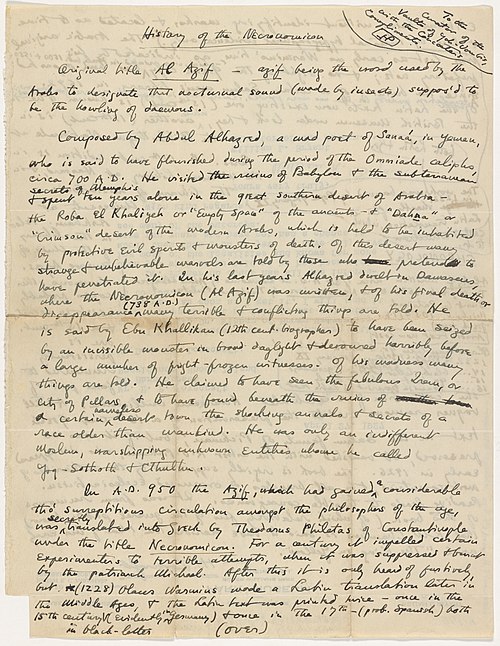 To the
Curator of the
Vaults of Yoh-Vombis
with the Concoctor's
Compliments
History of the Necronomicon
Original title Al Azif — azif being the word used by the
Arabs to designate that nocturnal sound (made by insects) suppos'd to
be the howling of daemons.
Composed by Abdul Alhazred, a mad poet of Sanaá, in Yemen,
who is said to have flourished during the period of the Ommiade caliphs,
circa 700 A.D. He visited the ruins of Babylon & the subterranean
secrets of Memphis
& spent ten years alone in the great southern desert of Arabia —
the Roba El Khaliyeh or "Empty Space" of the ancients — & "Dahna" or
"Crimson" desert of the modern Arabs, which is held to be inhabited
by protective evil spirits & monsters of death. Of this desert many
strange & unbelievable marvels are told by those who pretend to
have penetrated it. In his last years Alhazred dwelt in Damascus,
where the Necronomicon (Al Azif) was written, & of his final death or
disappearance (738 A.D.) many terrible & conflicting things are told. He
is said by Ebn Khallikan (12th cent. biographer) to have been seized
by an invisible monster in broad daylight & devoured horribly before
a large number of fright-frozen witnesses. Of his madness many
things are told. He claimed to have seen the fabulous Irem, or
City of Pillars, & to have found beneath the ruins of
a certain nameless desert town the shocking annals & secrets of a
race older than mankind. He was only an indifferent
Moslem, worshipping unknown Entities whom he called
Yog-Sothoth & Cthulhu.
In A.D. 950 the Azif, which had gained a considerable
tho' surreptitious circulation amongst the philosophers of the age,
was secretly translated into Greek by Theodorus Philetas of Constantinople
under the title Necronomicon. For a century it impelled certain
experimenters to terrible attempts, when it was suppressed & burnt
by the patriarch Michael. After this it is only heard of furtively,
but (1228) Olaus Wormius made a Latin translation later in
the Middle Ages, & the Latin text was printed twice — once in the
15th century (evidently in Germany) & once in the 17th — (prob. Spanish) both
in black-letter
(over)